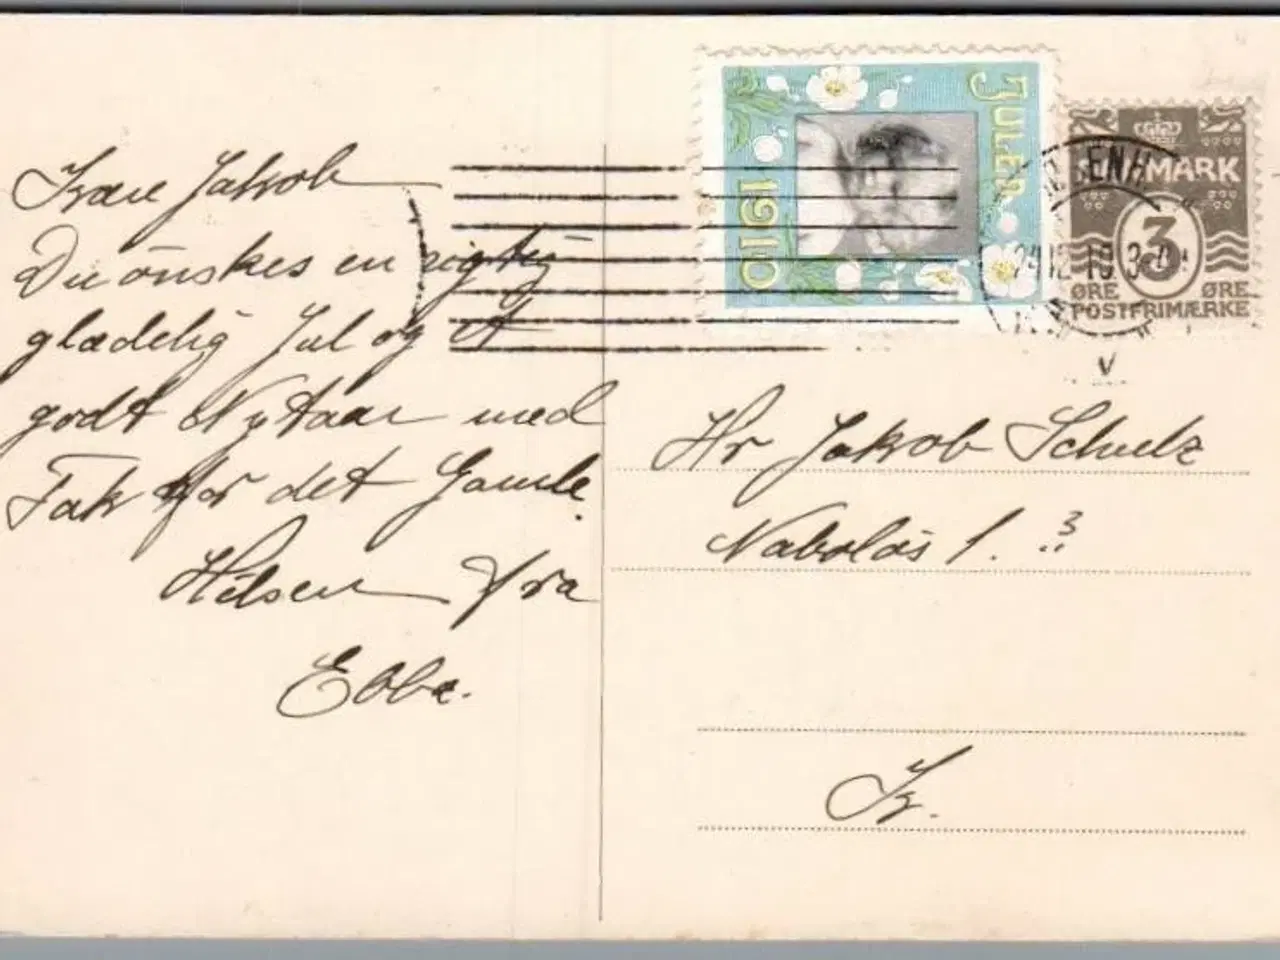 Kære Jakob
Du ønskes en rigtig
glædelig Jul og et
godt Nytaar med
Tak for det Gamle.
Hilsen fra
Ebba.
JULEN
1910
DANMARK
3
ØRE ØRE
POSTFRIMÆRKE
24.12.10.3-4
Hr Jakob Schulz
Naboløs 1. 3
K.